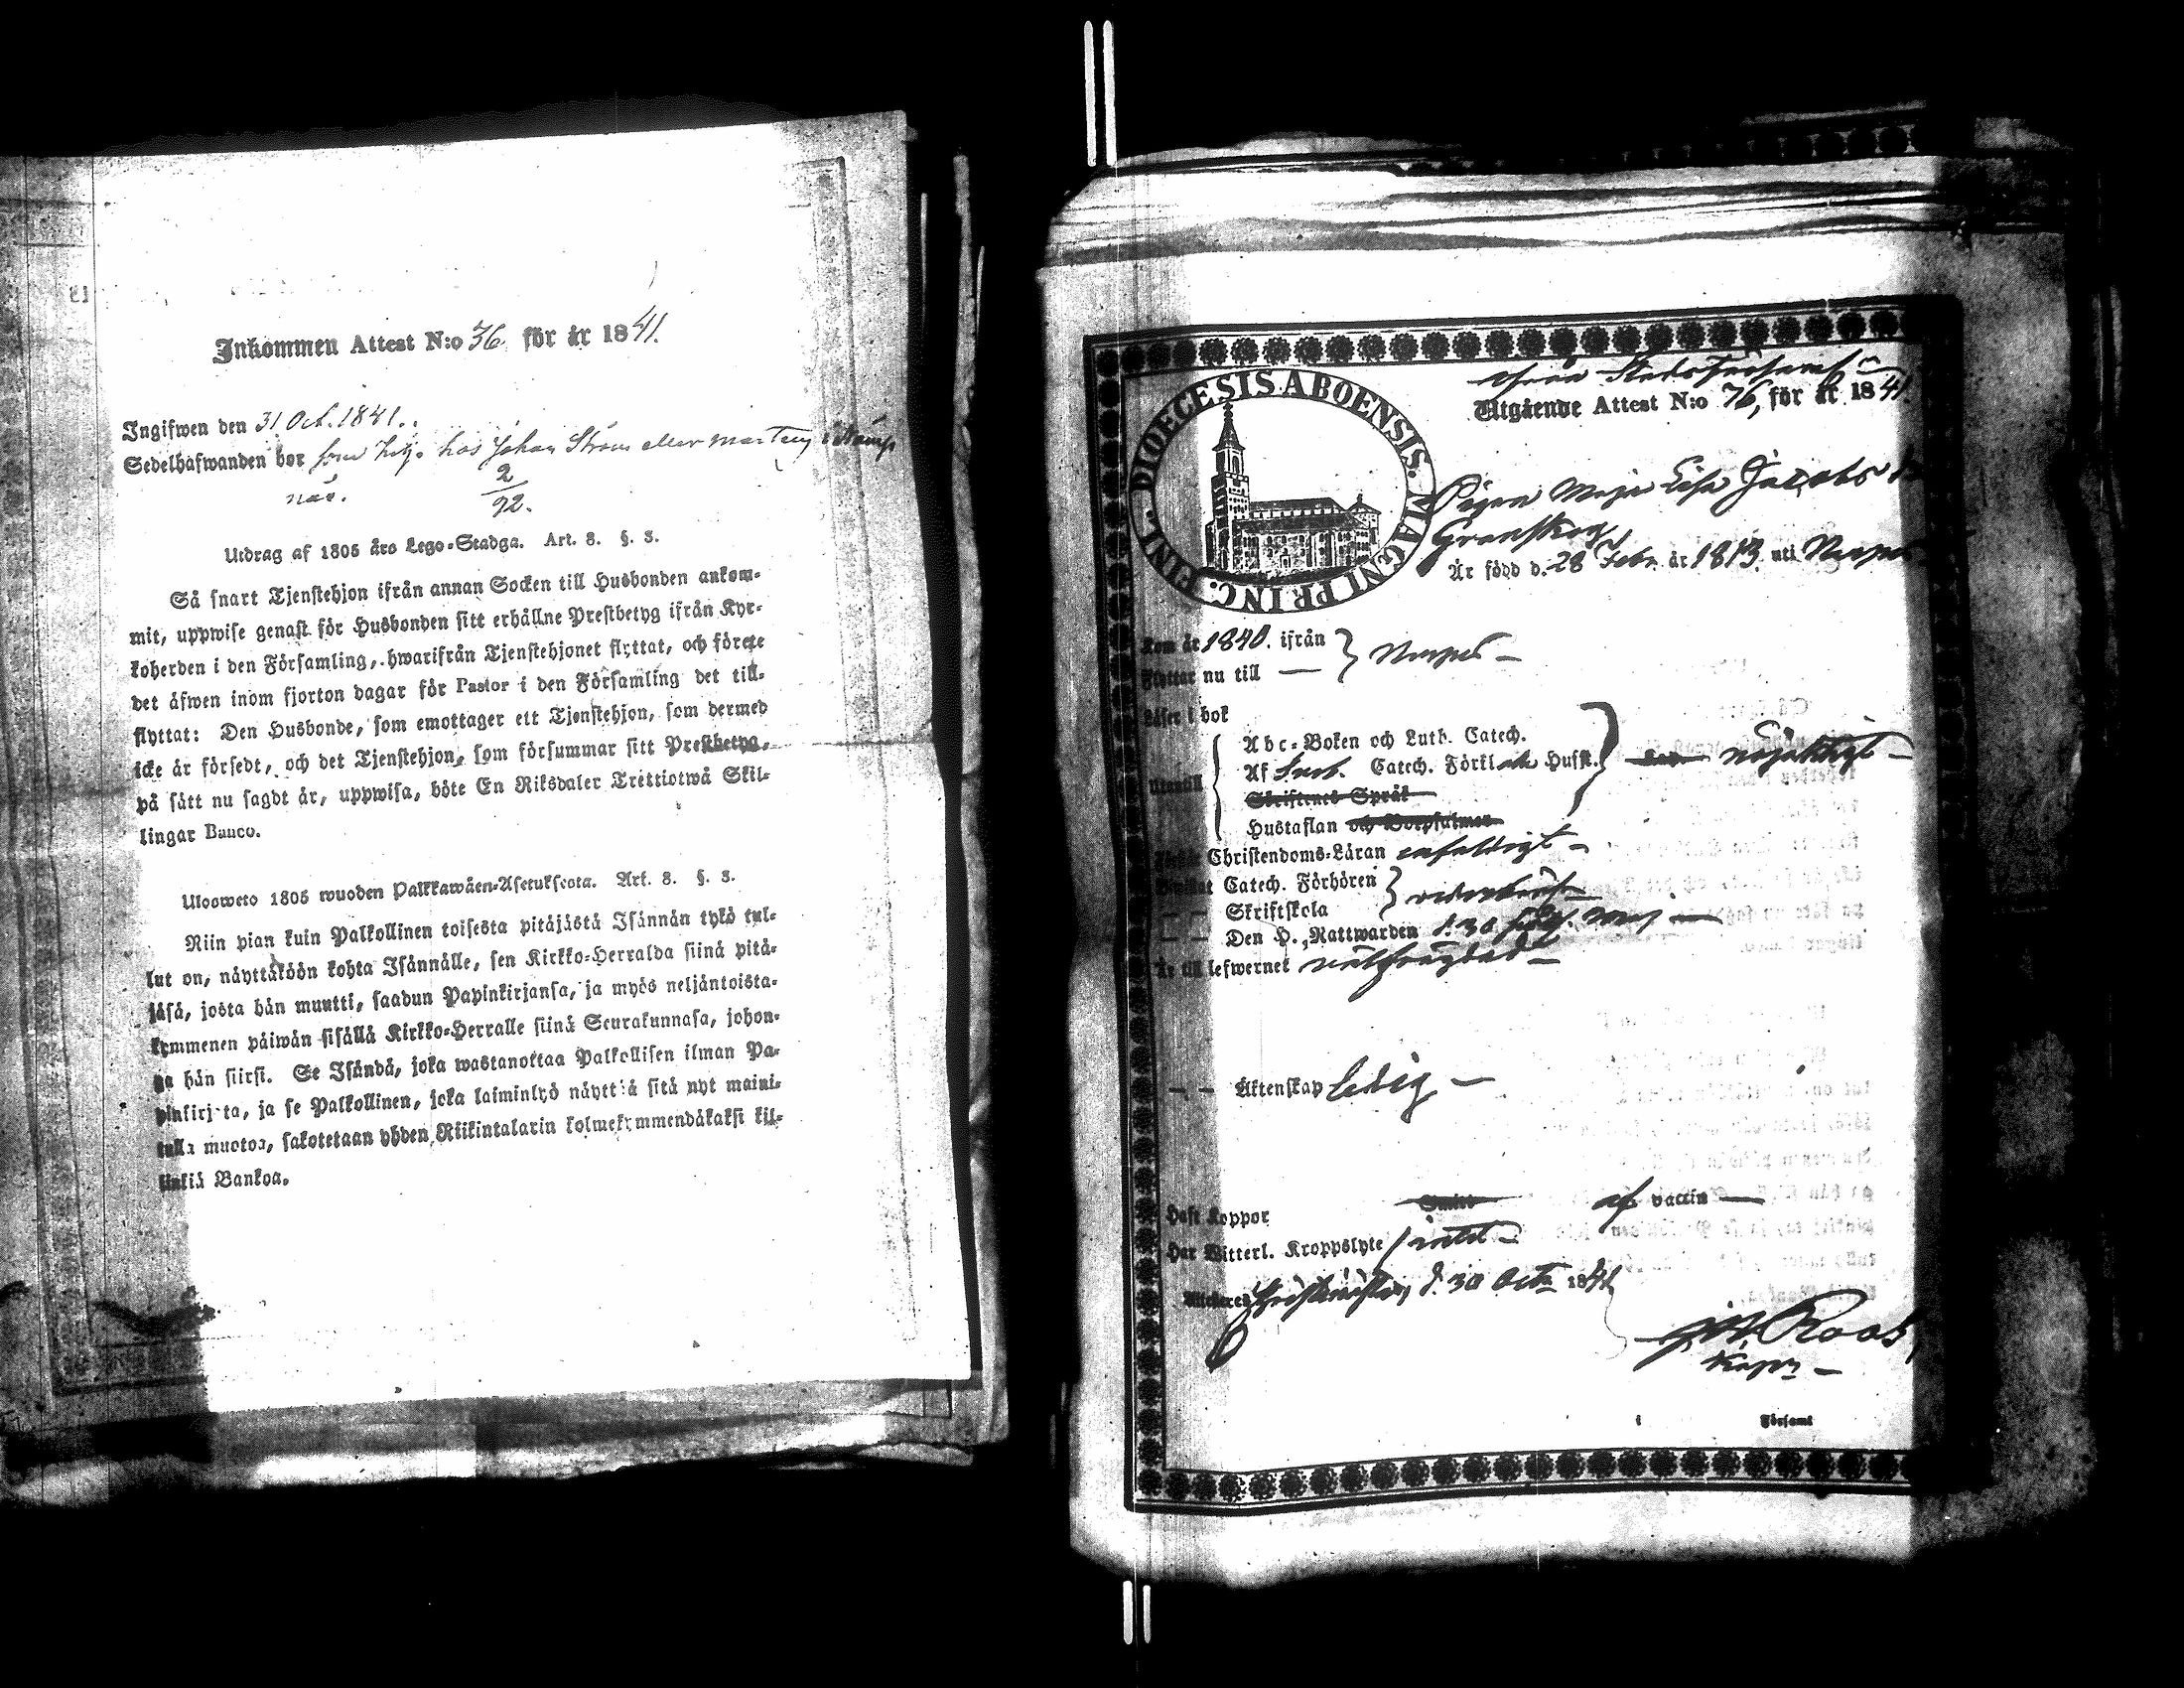 Inkommen Attest N:o 36 för år 1841.
Ingifwen den 31 Oct. 1841.
Sedelhafwanden bor som hos Johan Ström eller
2
92.
Utdrag af 1805 års Lego-Stadga. Art. 8. §. 3.
Så snart Tjenstehjon ifrån annan Socken till Husbonden ankom-
mit, uppwise genast för Husbonden sitt erhållne Prestbetyg ifrån Kyr-
koherden i den Församling, hwarifrån Tjenstehjonet flyttat, och förete
det äfwen inom fjorton dagar för Pastor i den Församling det till-
flyttat: Den Husbonde, som emottager ett Tjenstehjon, som dermed
icke är försedt, och det Tjenstehjon, som försummar sitt Prestbetyg,
på sätt nu sagdt är, uppwisa, böte En Riksdaler Trettiotwå Skil-
lingar Banco.
Ulosweto 1805 wuoden Palkkawäen-Asetuksesta. Art. 8. §. 3.
Niin pian kuin Palkollinen toisesta pitäjästä Isännän tykö tul-
lut on, näyttäköön kohta Isännälle, sen Kirkko-Herralda siinä pitä-
jäsä, josta hän muutti, saadun Papinkirjansa, ja myös neljäntoista-
kymmenen päiwän sisällä Kirkko-Herralle siinä Seurakunnasa, johon-
ga hän siirsi. Se Isändä, joka wastanottaa Palkollisen ilman Pa-
pinkirjata, ja se Palkollinen, joka laiminlyö näyttää sitä nyt maini-
tulla muotoa, sakotetaan yhden Riikintalarin kolmekymmendäkaksi kil-
linkiä Bankoa.
DIOECESIS ABOENSIS. MAGNI PRINC. FINL.
Utgående Attest N:o 76, för år 1841.
Pigan Maja Lisa Jacobs
Granskog
Är född d. 28 Febr. år 1813 uti Nerpes
Kom år 1840. ifrån
Flyttar nu till —
Nerpes —
Läser i bok
Utantill
Abc-Boken och Luth. Catech.
Af Catech. Förkl Husst.
Skriftenes Språk
Hustaflan och Botpsalmer
nöjaktigt —
Christendoms-Läran enfaldigt —
Catech. Förhören
— — Skriftskola
— — Den H. Nattwarden d. 30
Är till lefwernet
— — Äktenskap ledig —
Haft Koppor af vaccin —
Har Witterl. Kroppslyte intet —
d. 30 Oct. 1841
Roos
i Församl